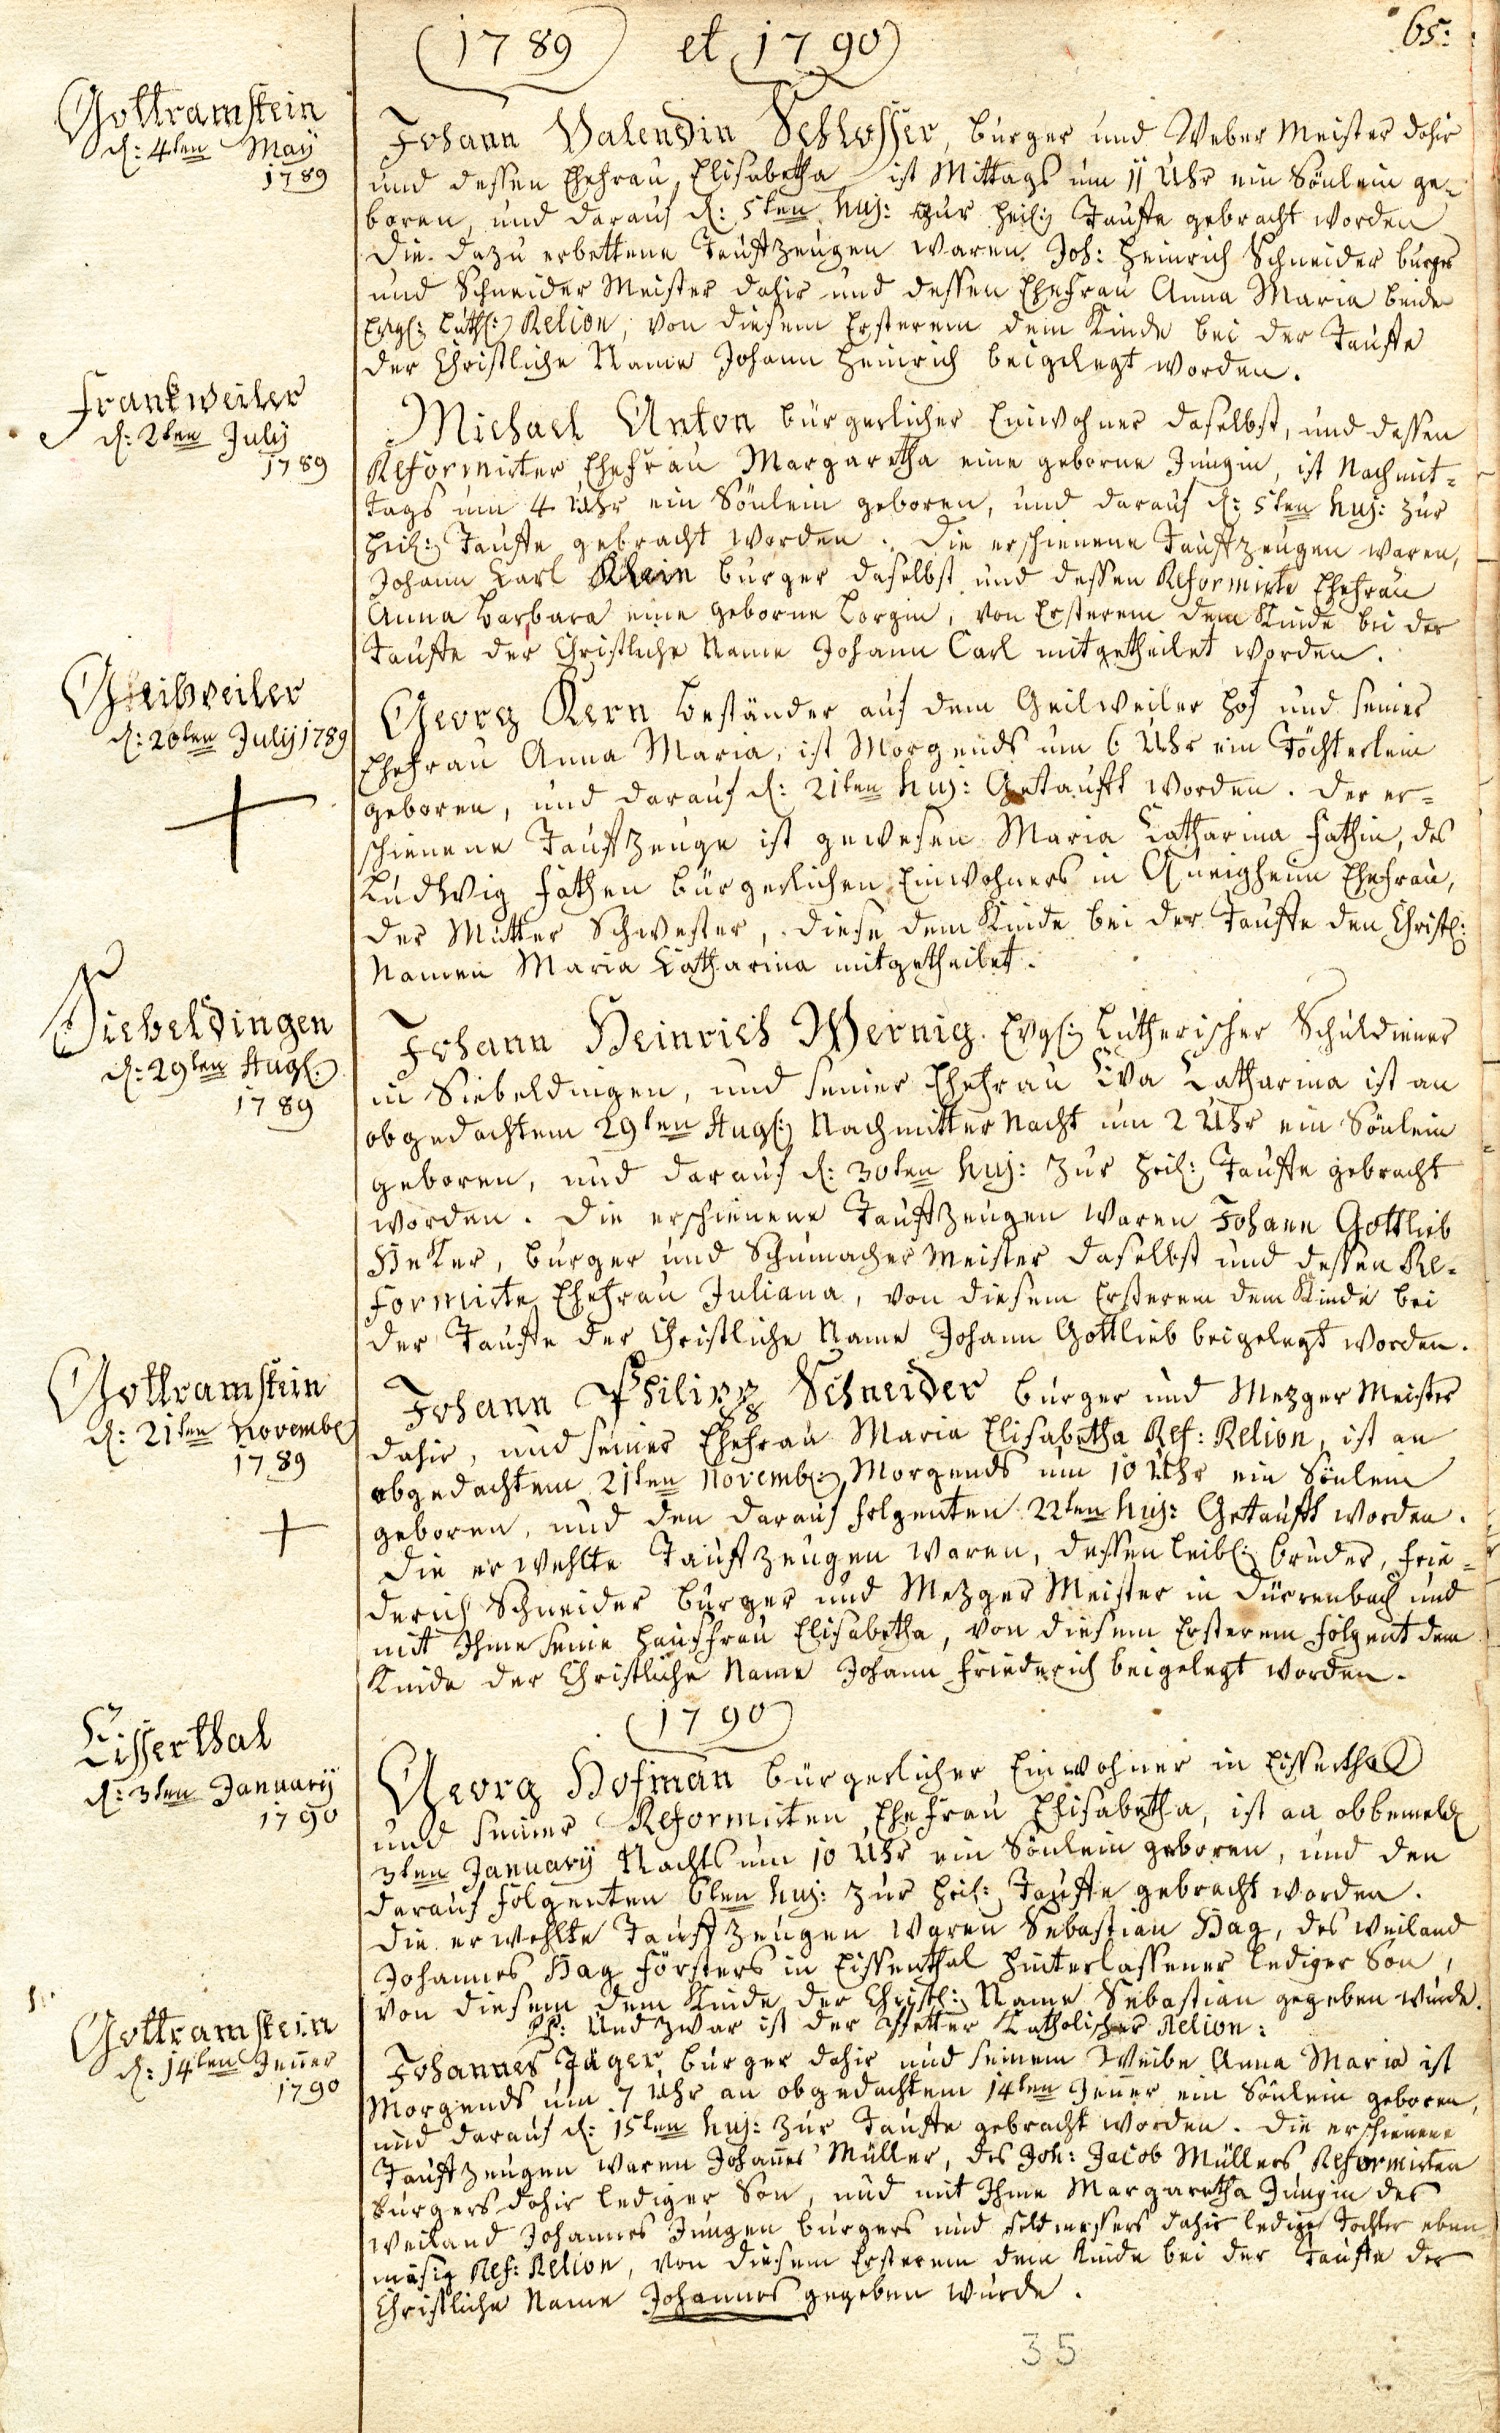 1789 et 1790
65:
Gottramstein
d: 4ten Maÿ
1789
Johann Valendin Schlosser, burger und Weber Meister dahir
und dessen Ehefrau Elisabetha ist Mittags um 11 Uhr ein Sönlein ge-
boren, und darauf d: 5ten huj: zur heil: Tauffe gebracht worden
Die dazu erbettene Tauffzeugen waren Joh: Heinrich Schneider burger
und Schneider Meister dahir und dessen Ehefrau Anna Maria beide
Evgl: Luth: Relion, von diesem Ersterem dem Kinde bei der Tauffe
der Christliche Name Johann Heinrich beigelegt worden.
Frankweiler
d: 2ten Julÿ
1789
Michael Anton bürgerlicher Einwohner daselbst, und dessen
Reformirter Ehefrau Margaretha eine geborne Jungin, ist Nachmit-
tags um 4 Uhr ein Sönlein geboren, und darauf d: 5ten huj: zur
heil: Tauffe gebracht worden. Die erschienene Tauffzeugen waren,
Johann Carl Klein burger daselbst und dessen Reformirte Ehefrau
Anna Barbara eine geborne Lorgin, von Ersterem dem Kinde bei der
Tauffe der Christliche Name Johann Carl mitgetheilet worden.
Gleibweiler
d: 20ten Julÿ 1789
Georg Kern beständer auf dem Geilweiler hof und seiner
Ehefrau Anna Maria, ist Morgends um 6 Uhr ein Töchterlein
geboren, und darauf d: 21ten huj: Getaufft worden. Der er-
schienene Tauffzeuge ist gewesen Maria Catharina Fathin, des
Ludwig Fathen bürgerlichen Einwohners in Queigheim Ehefrau,
der Mutter Schwester, diese dem Kinde bei der Tauffe den Christl:
Namen Maria Catharina mitgetheilet.
Siebeldingen
d: 29ten Augl:
1789
Johann Heinrich Wernig Evgl: Lutherischer Schuldiener
in Siebeldingen, und seiner Ehefrau Eva Catharina ist an
obgedachtem 29ten Augl: Nachmitter Nacht um 2 Uhr ein Sönlein
geboren, und darauf d: 30ten huj: zur heil: Tauffe gebracht
worden. Die erschienene Tauffzeugen waren Johann Gottlieb
Heker, burger und Schumacher Meister daselbst und dessen Re-
formirte Ehefrau Juliana, von diesem Ersterem dem Kinde bei
der Tauffe der Christliche Name Johann Gottlieb beigelegt worden.
Gottramstein
d: 21ten Novembl
1789
Johann Philipp Schneider burger und Mezger Meister
dahir, und seiner Ehefrau Maria Elisabetha Ref: Relion, ist an
obgedachtem 21ten Novembl: Morgends um 10 Uhr ein Sönlein
geboren, und den darauf folgenten 22ten huj: Getaufft worden.
Die erwehlte Tauffzeugen waren, dessen leibl: bruder, Frie-
derich Schneider burger und Mezger Meister in Dürrenbach und
mit Ihme seine Hausfrau Elisabetha, von diesem Ersterem folgent dem
Kinde der Christliche Name Johann Friederich beigelegt worden.
1790
Eisserthal
d: 3ten Januarÿ
1790
Georg Hofman bürgerlicher Einwohner in Eisserthal
und seiner Reformirten Ehefrau Elisabetha, ist an obbemeld
3ten Januarÿ Nachts um 10 Uhr ein Sönlein geboren, und den
darauf folgenten 6ten huj: zur heil: Tauffe gebracht worden.
Die erwehlte Tauffzeugen waren Sebastian Hag, des weiland
Johannes Hag försters in Eissenthal hinterlassener lediger Son,
von diesem dem Kinde der Christl: Name Sebastian gegeben wurde.
Und zwar ist der Pfetter Catholischer Relion:
Gottramstein
d: 14ten Jener
1790
Johannes Jäger, burger dahir und seinem Weibe Anna Maria ist
Morgends um 7 Uhr an obgedachtem 14ten Jener ein Sönlein geboren,
und darauf d: 15ten huj: zur Tauffe gebracht worden. Die erschienene
Tauffzeugen waren Johannes Müller, des Joh: Jacob Müllers Reformirten
burgers dahir lediger Son, und mit Ihme Margaretha Jungin des
weiland Johannes Jungen burgers und feldmessers dahir lediger Tochter eben
mäsig Ref: Relion, von diesem Ersterem dem Kinde bei der Tauffe der
Christliche Name Johannes gegeben wurde.
35